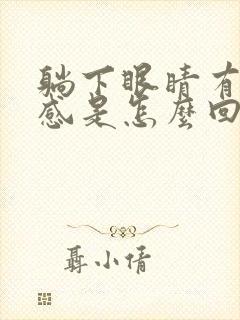 躺下眼睛有
感是怎麼回
聶小倩